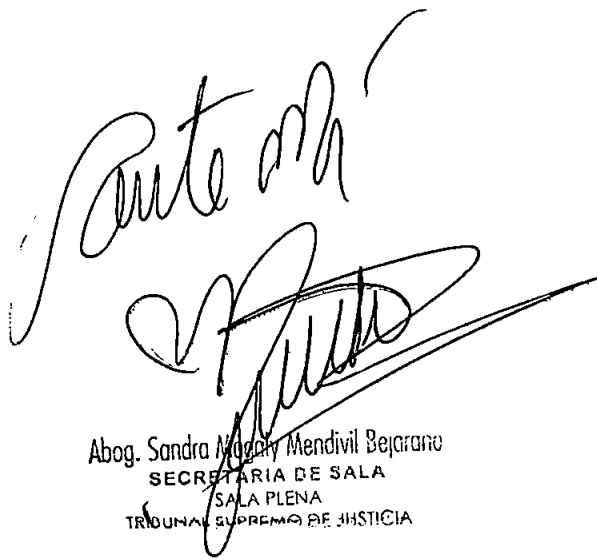 ante mí
Abog. Sandra Magaly Mendivil Bejarano
SECRETARIA DE SALA
SALA PLENA
TRIBUNAL SUPREMO DE JUSTICIA